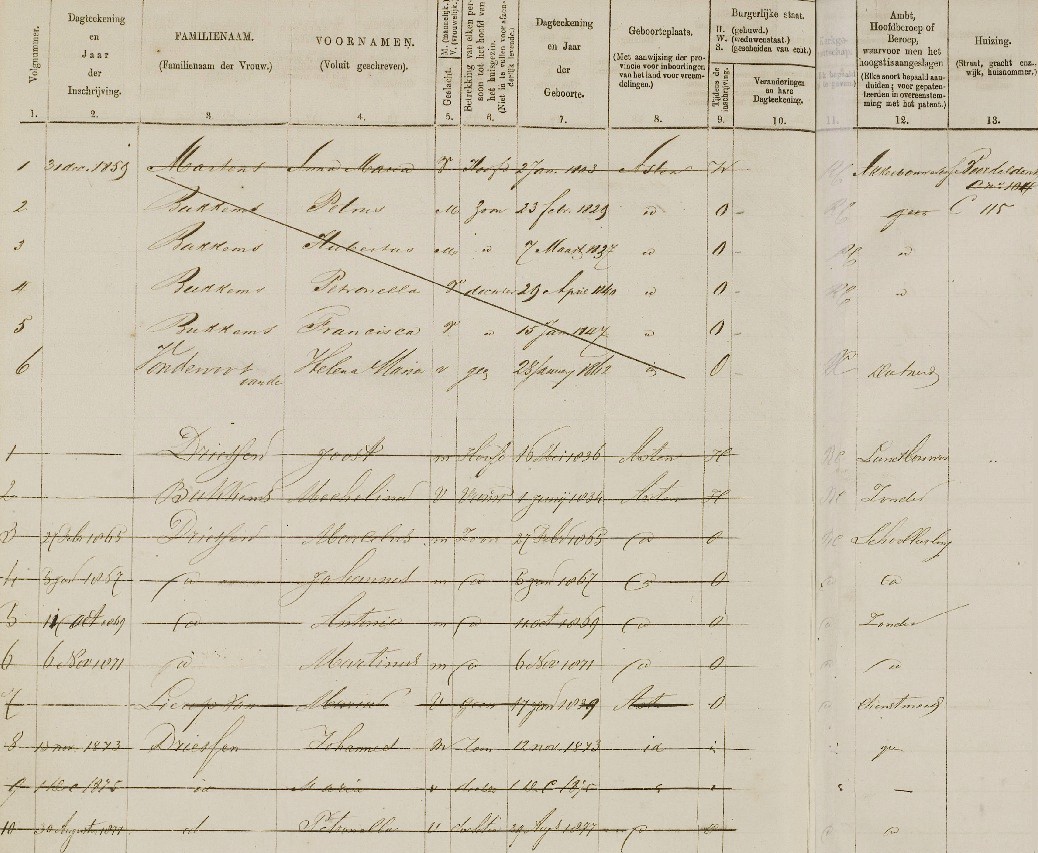 Volgnummer.
Dagteekening en Jaar der Inschrijving.
FAMILIENAAM.
(Familienaam der Vrouw.)
VOORNAMEN.
(Voluit geschreven).
Geslacht. M. (mannelijk.) V. (vrouwelijk.)
Betrekking van elken persoon tot het hoofd van het huisgezin.
Dagteekening en Jaar der Geboorte.
Geboorteplaats.
(Met aanwijzing der provincie voor inboorlingen, van het land voor vreemdelingen.)
Burgerlijke staat.
H. (gehuwd.)
W. (weduwenstaat.)
S. (gescheiden van echt.)
Tijdens de inschrijving.
Veranderingen en hare Dagteekening.
Ambt, Hoofdberoep of Beroep, waarvoor men het hoogst is aangeslagen
(Elke soort bepaald aanduiden; voor gepatenteerden in overeenstemming met het patent.)
Huizing.
(Straat, gracht enz., wijk, huisnommer.)
1. 2. 3. 4. 5. 6. 7. 8. 9. 10. 11. 12. 13.
1 31 dec. 1859 Martens Anna Maria V Hoofd 2 Jan. 1803 Asten W
2 Bukkems Petrus M Zoon 23 febr. 1829 id O geen C 115
3 Bukkems Hubertus M id 7 Maart 1837 id O id
4 Bukkems Petronella V 29 April 1840 id O id
5 Bukkems Francisca V id 15 Jan 1847 id O
6 Helena Maria V 28 January 1862 id O
1 Driessen Joost m Hoofd 16 1836 Asten H Landbouwer
2 Bukkems V Vrouw 1 Junij 1834 Asten H Zonder
3 27 Febr 1865 Driessen Marcelus m Zoon 27 Febr 1865 id O
4 5 jan 1867 id Johannes m id 5 jan 1867 id O id
5 11 Oct 1869 id Antonie m id 11 oct 1869 id O Zonder
6 6 Nov 1871 id Martinus m id 6 Nov 1871 id O id
7 Maria V geen 17 jan 1839 Asten O dienstmeid
8 13 nov. 1873 Driessen Johannes M Zoon 12 nov. 1873 id
9 1 Dec 1875 id Maria v 1 Dec 1875
10 30 Augustus id Petronella V dochter 29 Aug 1877 id